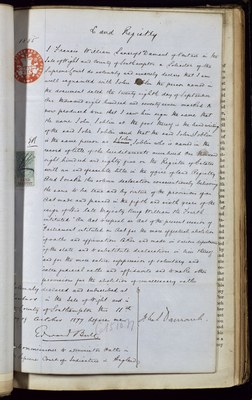 Land Registry
I Francis William
Isle of Wight and County of Southampton a Solicitor of the
Supreme Court do solemnly and sincerely declare that I am
well acquainted with John the person named in
the document dated the twenty eighth day of September
One thousand eight hundred and seventy seven marked A
now produced and that I saw him sign the same that
the name John at the foot thereof is the
of the said John that the said John
is the same person as John who is named in the
record of title of the hereditaments numbered One thousand
eight hundred and eighty five on the Register of estates
with an indefeasible title in the office of Land Registry
And I make this solemn declaration conscientiously believing
the same to be true and by virtue of the provisions of an
Act made and passed in the fifth and sixth years of the
reign of His late Majesty King William the Fourth
intituled "An Act to repeal an Act of the present Session of
Parliament intituled an Act for the more effectual abolition
of oaths and affirmations taken and made in various departments
of the State and to substitute declarations in lieu thereof
and for the more entire suppression of voluntary and
extra judicial oaths and affidavits and to make other
provisions for the abolition of unnecessary oaths
declared and subscribed at
in the Isle of Wight and in
County of Southampton this 18th
day of October 1877 before me
A Commissioner to administer Oaths in
Supreme Court of Judicature in England